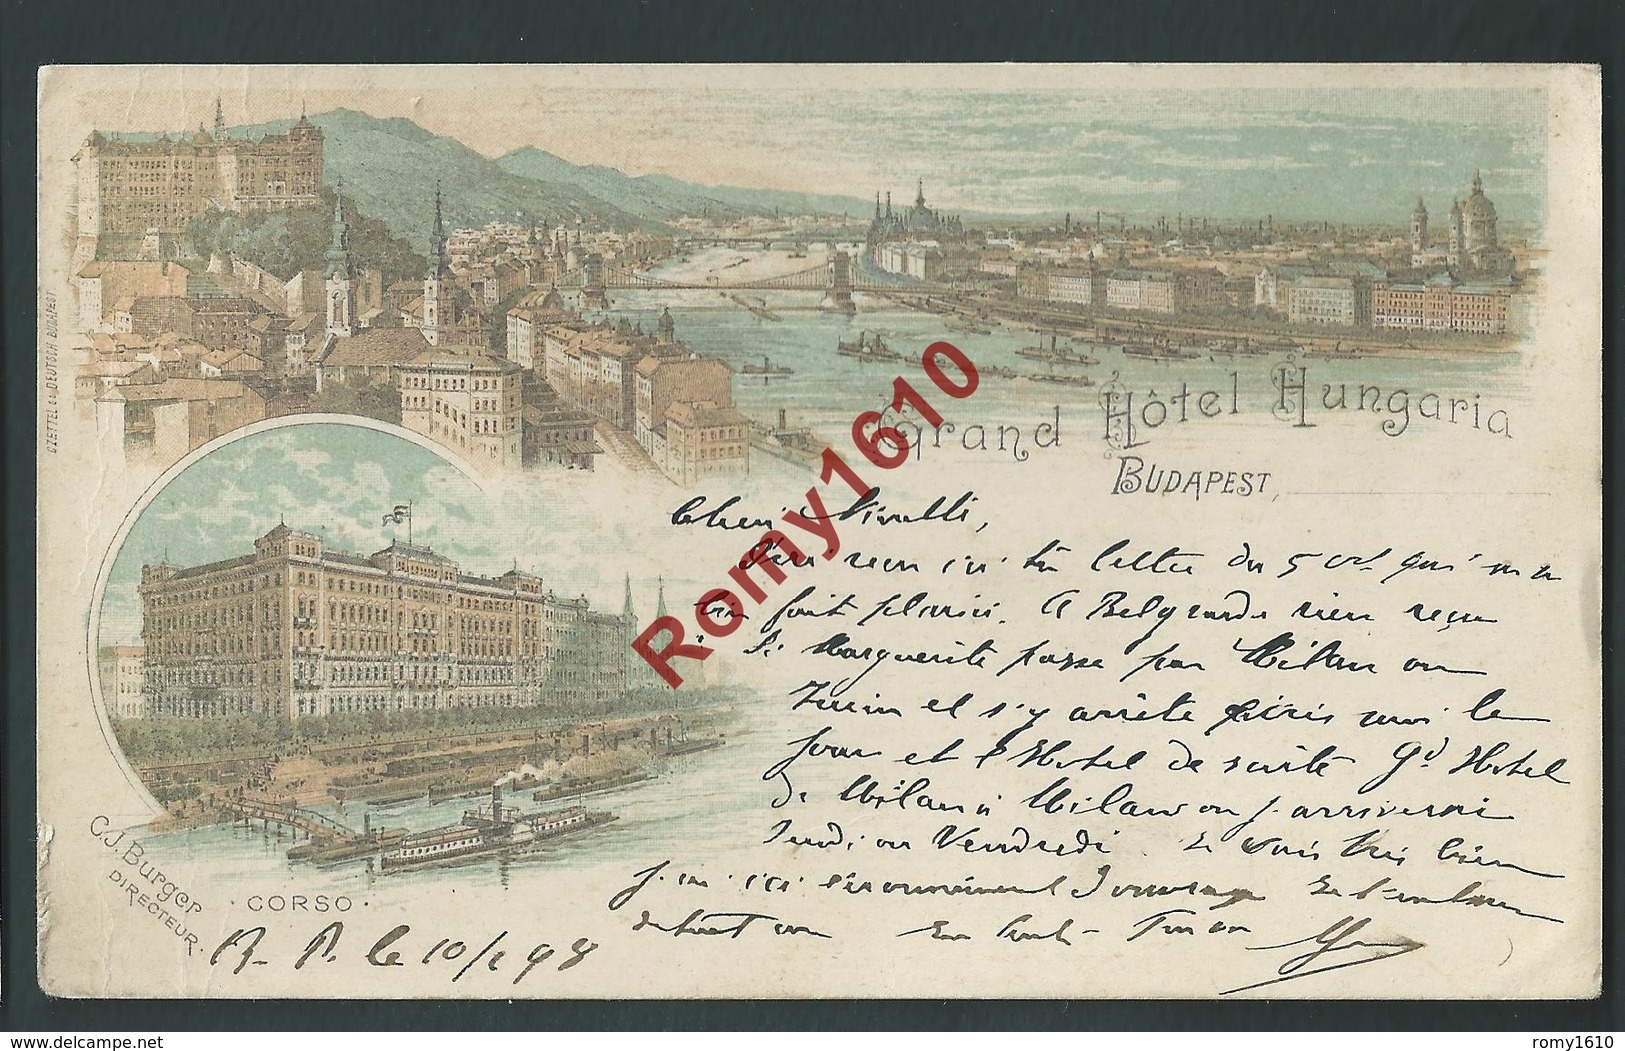 CZETTEL & DEUTSCH BUDAPEST
Grand Hôtel Hungaria
BUDAPEST,
Romy1610
J'ai reçu ici ta lettre du 5 qui m'a
fait plaisir. A Belgrade rien reçu
Si Marguerite passe par Milan ou
Turin et s'y arrête écris moi le
jour et l'Hotel de suite Gd Hotel
de Milan à Milan ou j'arriverai
Jeudi ou Vendredi. Je vais très bien
j'ai ici énormément d'ouvrage
C. J. Burger
DIRECTEUR.
· CORSO ·
B. P. le 10/ 98
www.delcampe.net
romy1610